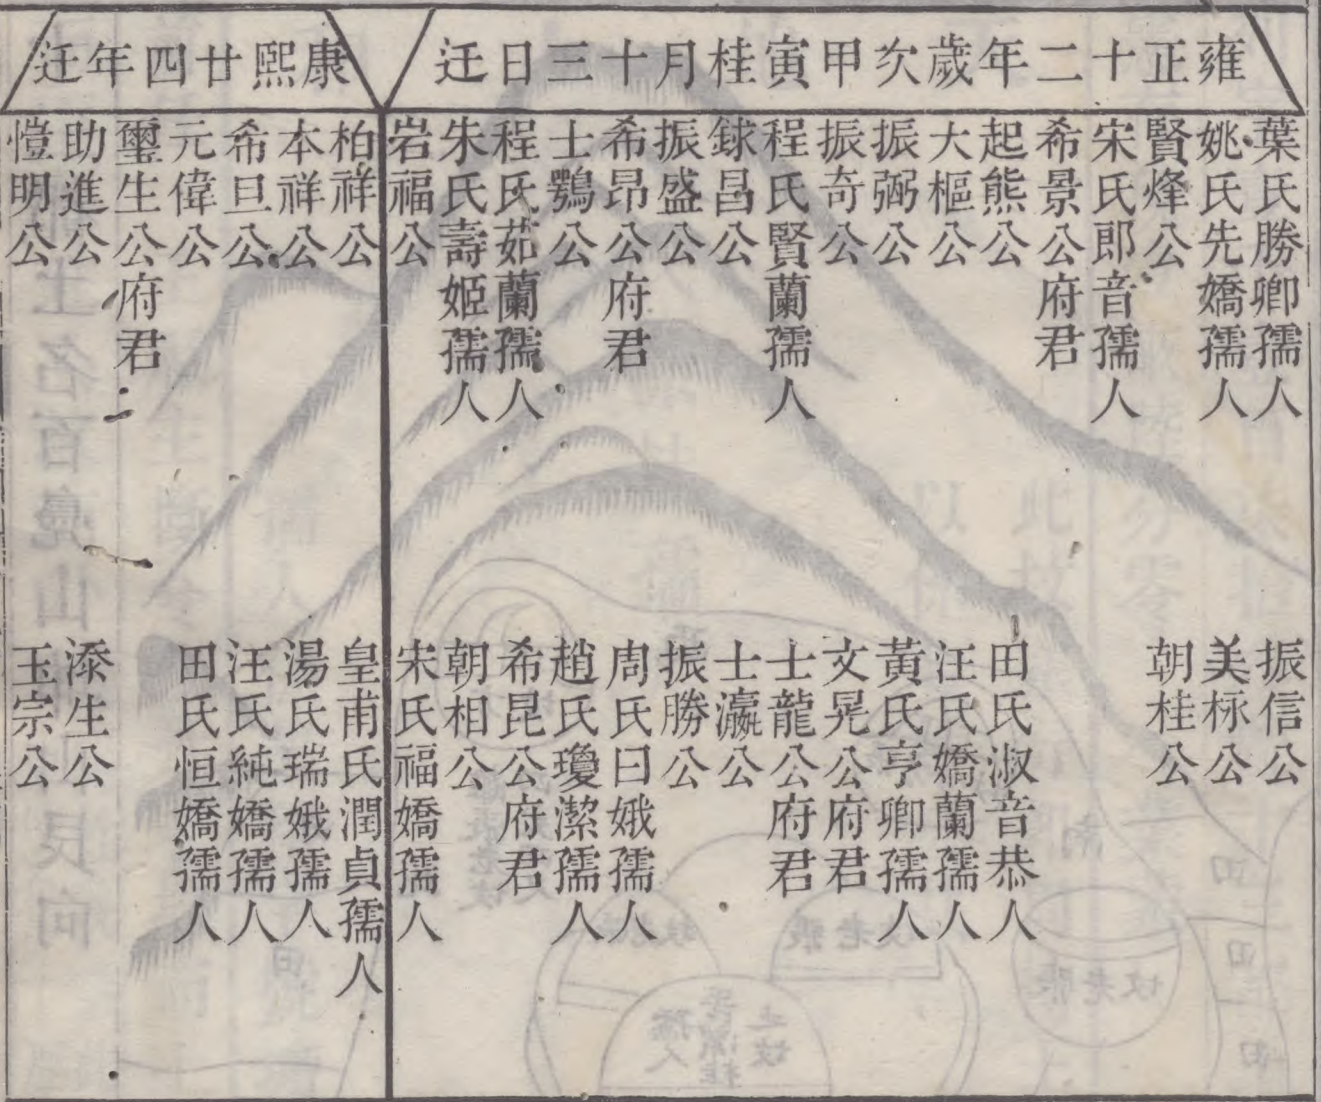 雍正十二年歲次甲寅桂月十三日迁
葉氏勝卿孺人
姚氏先嬌孺人
賢烽公
宋氏郎音孺人
希景公府君
起熊公
大樞公
振弼公
振奇公
程氏賢蘭孺人
銶昌公
振盛公
希昂公府君
士鶚公
程氏茹蘭孺人
朱氏壽姬孺人
岩福公
振信公
美柡公
朝桂公
田氏淑音恭人
汪氏嬌蘭孺人
黃氏亨卿孺人
文晃公府君
士龍公府君
士瀛公
振勝公
周氏曰娥孺人
趙氏瓊潔孺人
希昆公府君
朝相公
宋氏福嬌孺人
康熙廿四年迁
柏祥公
本祥公
希旦公
元偉公
璽生公府君
助進公
愷明公
皇甫氏潤貞孺人
湯氏瑞娥孺人
汪氏純嬌孺人
田氏恒嬌孺人
添生公
玉宗公